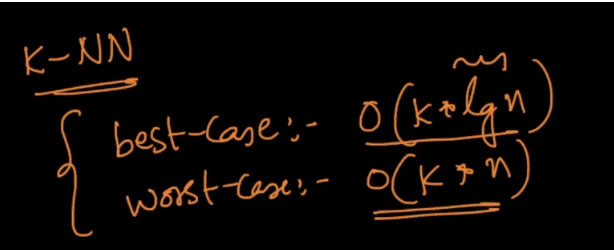 K-NN
best-case:- O(k*lg n)
worst-case:- O(k*n)